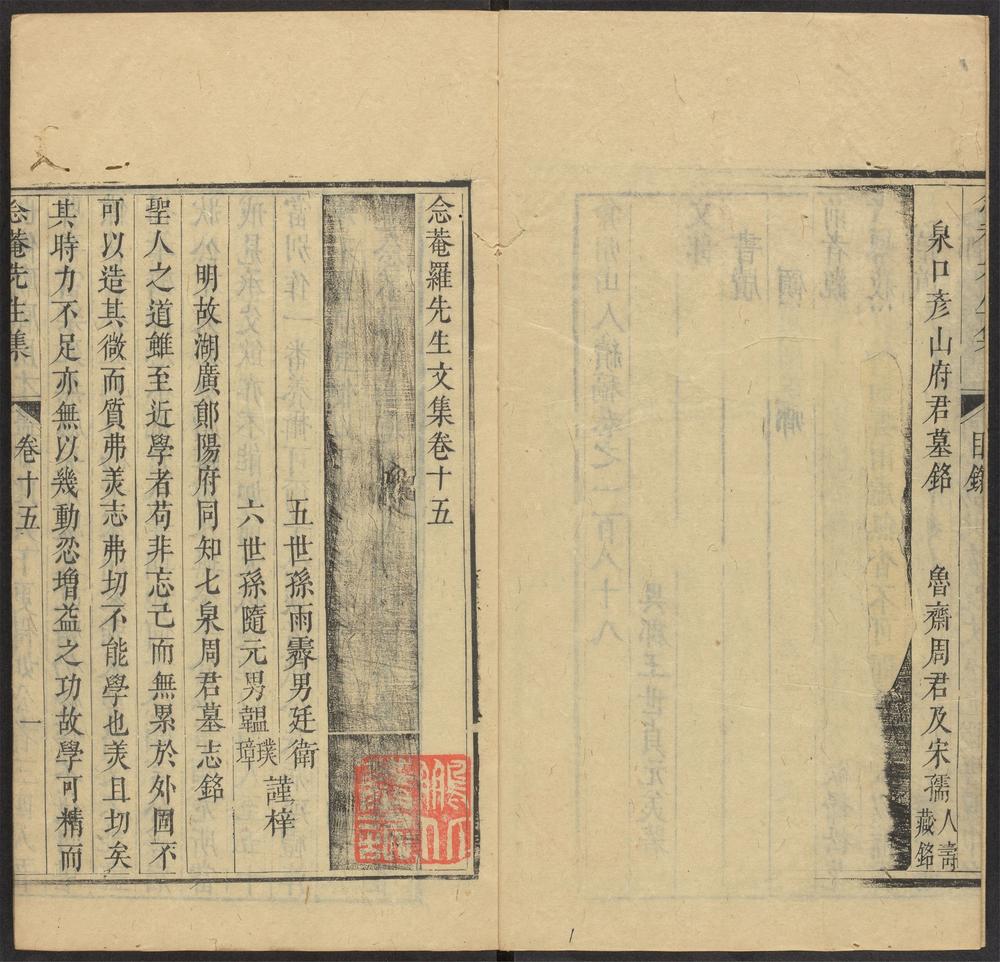 目錄
泉口彥山府君墓銘　魯齋周君及宋孺人壽藏銘
念菴羅先生文集卷十五
五世孫雨霽男廷衛
六世孫隨元男韞璞璋
謹梓
明故湖廣鄖陽府同知七泉周君墓志銘
聖人之道雖至近學者苟非忘己而無累於外固不
可以造其微而質弗美志弗切不能學也美且切矣
其時力不足亦無以幾動忍增益之功故學可精而
念菴先生集　卷十五　一